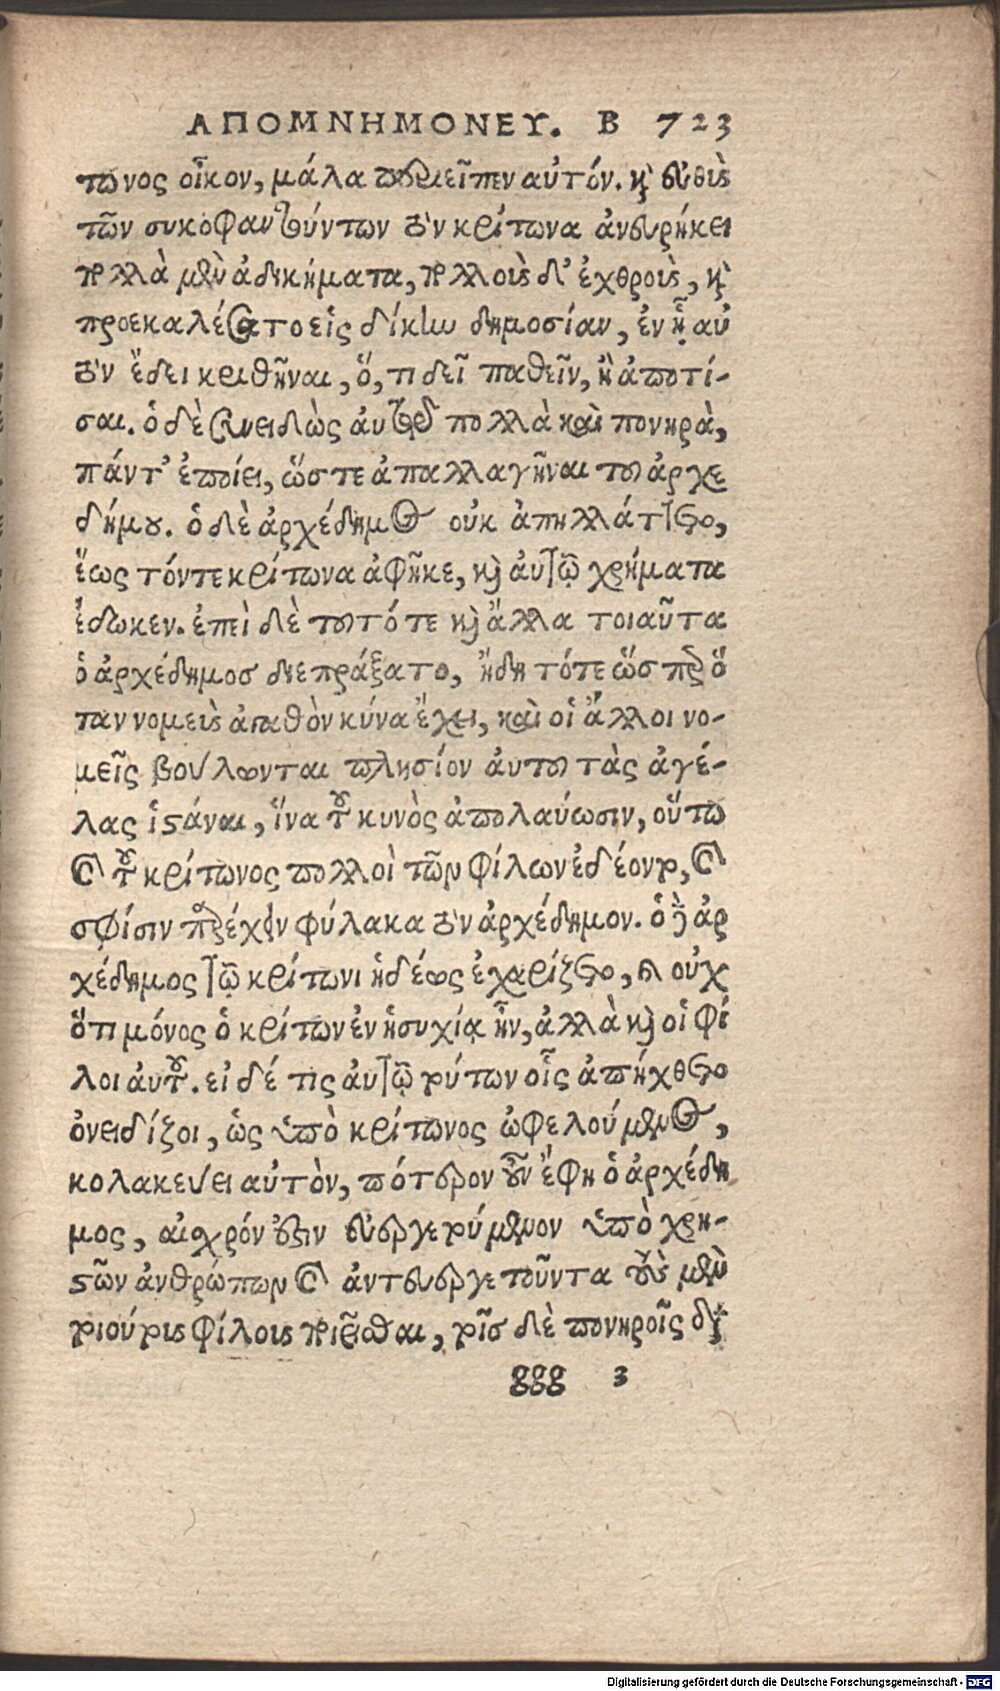 ΑΠΟΜΝΗΜΟΝΕΥ. Β 723
τωνος οἶκον, μάλα περιεῖπεν αὐτόν. καὶ εὐθὺς
τῶν συκοφαντούντων τὸν κρίτωνα ἀνευρήκει
πολλὰ μὲν ἀδικήματα, πολλοὺς δ' ἐχθροὺς, καὶ
προεκαλέσατο εἰς δίκην δημοσίαν, ἐν ᾗ αὐ
τὸν ἔδει κριθῆναι, ὅ,τι δεῖ παθεῖν, ἢ ἀποτί-
σαι. ὁ δὲ συνειδὼς αὑτῷ πολλὰ καὶ πονηρὰ,
πάντ' ἐποίει, ὥστε ἀπαλλαγῆναι τοῦ ἀρχε
δήμου. ὁ δὲ ἀρχέδημος οὐκ ἀπηλλάττετο,
ἕως τόντε κρίτωνα ἀφῆκε, καὶ αὐτῷ χρήματα
ἔδωκεν. ἐπεὶ δὲ τοῦτό τε καὶ ἄλλα τοιαῦτα
ὁ ἀρχέδημοσ διεπράξατο, ἤδη τότε ὥσπερ ὅ
ταν νομεὺς ἀγαθὸν κύνα ἔχει, καὶ οἱ ἄλλοι νο-
μεῖς βούλωνται πλησίον αὐτοῦ τὰς ἀγέ-
λας ἱστάναι, ἵνα τοῦ κυνὸς ἀπολαύωσιν, οὕτω
καὶ τοῦ κρίτωνος πολλοὶ τῶν φίλων ἐδέοντο, καὶ
σφίσιν παρέχειν φύλακα τὸν ἀρχέδημον. ὁ δὲ ἀρ
χέδημος τῷ κρίτωνι ἡδέως ἐχαρίζετο, καὶ οὐχ
ὅτι μόνος ὁ κρίτων ἐν ἡσυχίᾳ ἦν, ἀλλὰ καὶ οἱ φί
λοι αὐτοῦ. εἰ δέ τις αὐτῷ τούτων οἷς ἀπήχθετο
ὀνειδίζοι, ὡς ὑπὸ κρίτωνος ὠφελούμενος,
κολακεύει αὐτὸν, πότερον οὖν ἔφη ὁ ἀρχέδη
μος, αἰσχρόν ἐστιν εὐεργετούμενον ὑπὸ χρη-
στῶν ἀνθρώπων καὶ ἀντευεργετοῦντα τοὺς μὲν
τοιούτους φίλους ποιεῖσθαι, τοῖσ δὲ πονηροῖς δια
ggg 3
Digitalisierung gefördert durch die Deutsche Forschungsgemeinschaft - DFG